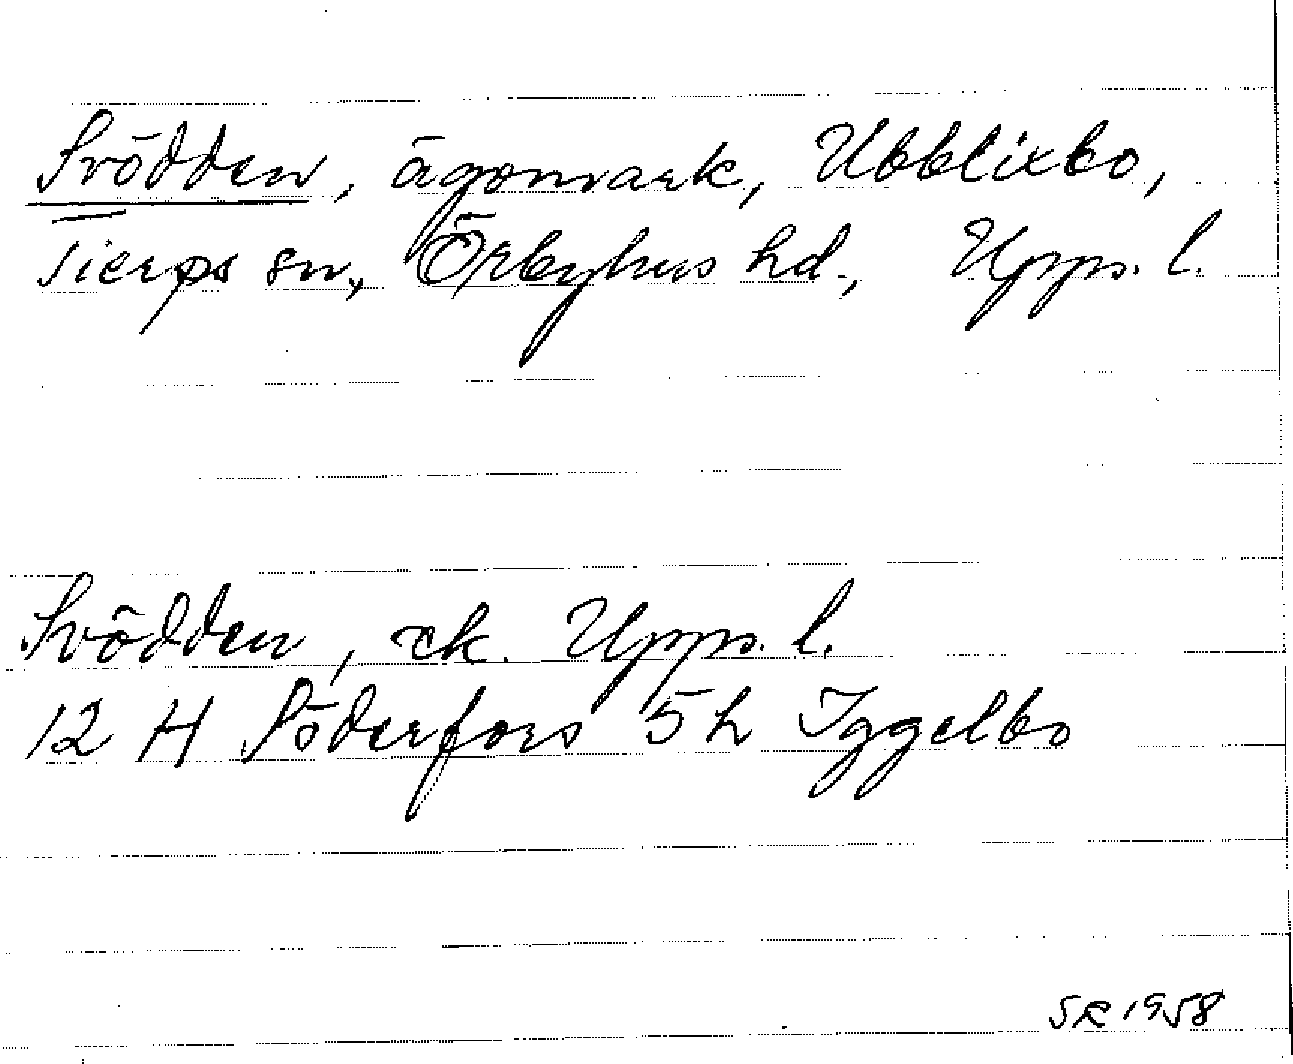 Svödden, ägomark, Ubblixbo,
Tierps sn, Örbyhus hd., Upps. l.
Svödden, ek. Upps. l.
12 H Söderfors 5 h Iggelbo
SR 1958